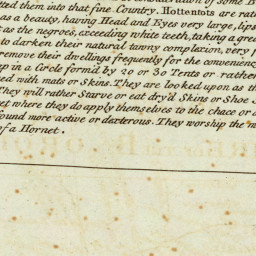 tted them into that fine Country. Hottentots are rat
as a beauty, having Head and Eyes very large, Lips
as the negroes, exceeding white teeth, taking a grea
to darken their natural tawny complexion, very
remove their dwellings frequently for the convenienc
up in a Circle form'd by 20 or 30 Tents or rather
ed with mats or Skins. They are looked upon as th
They will rather Starve or eat dry'd Skins or Shoe S
et where they do apply themselves to the chace or
ound more active or dexterous. They worship the m
of a Hornet.